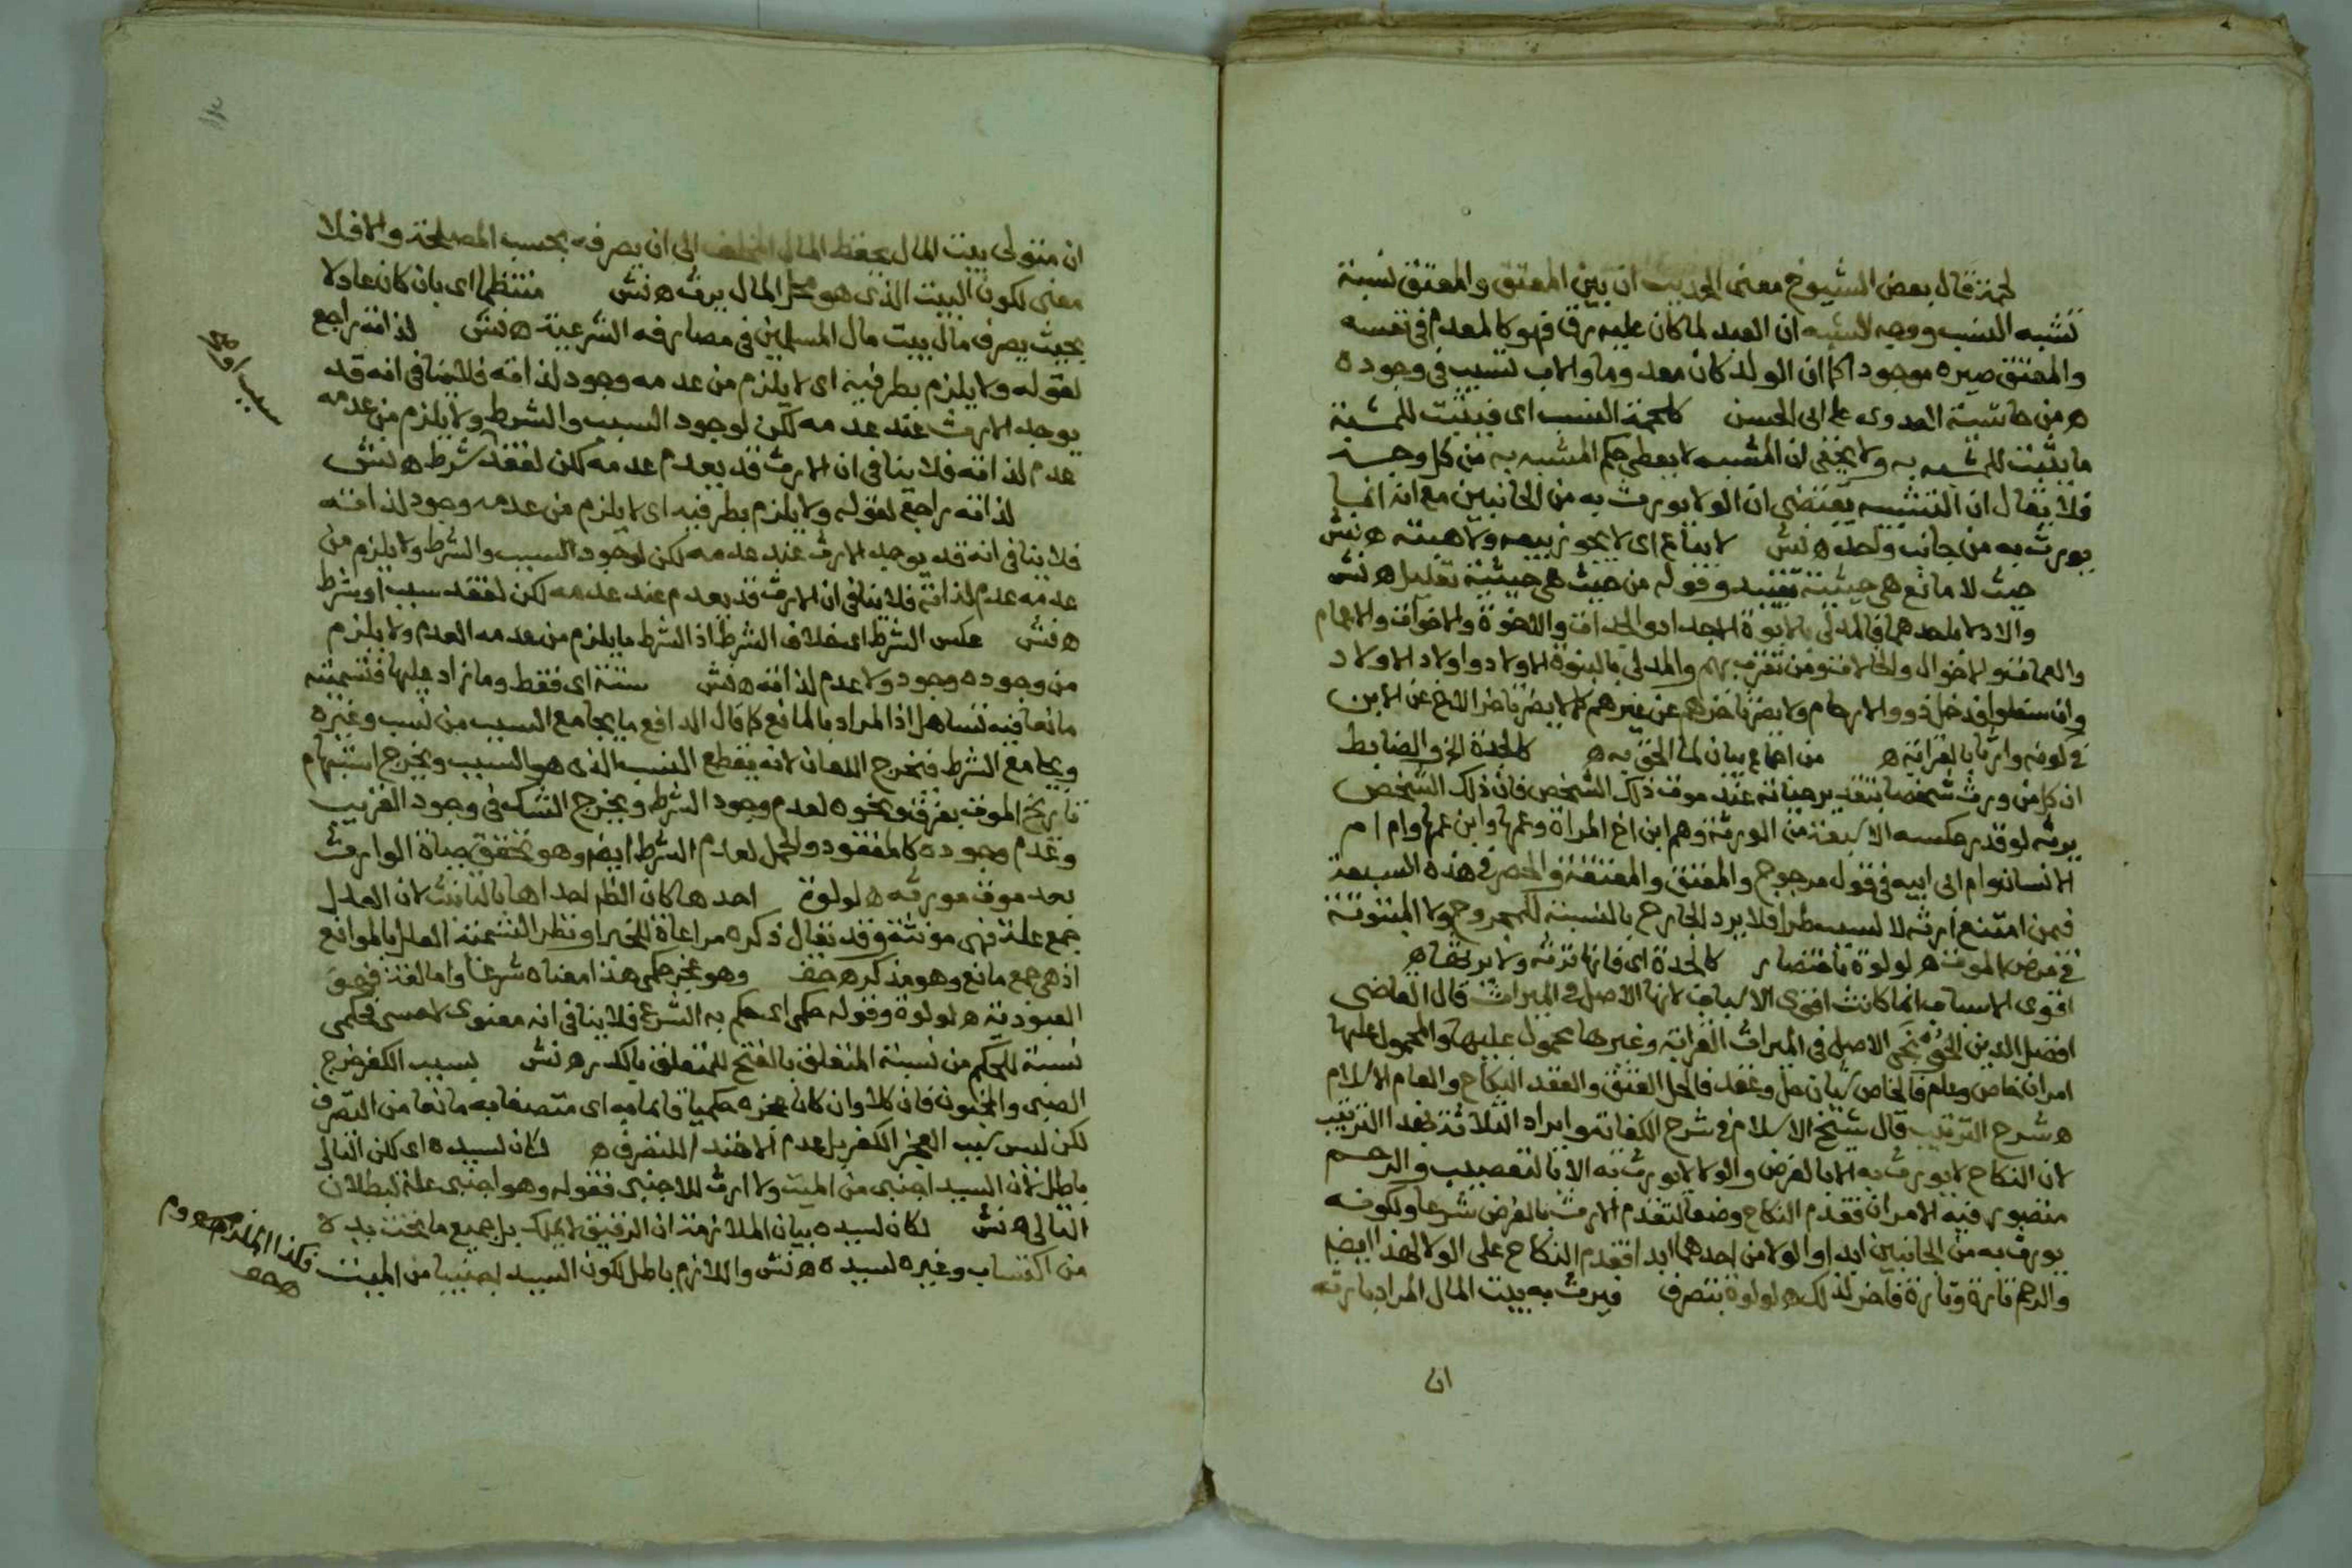 لحمة قال بعض الشيوخ معنى الحديث ان بين المعتق والمعتق نسبة
تشبه النسب ووجه الشبه ان العبد لما كان عليه رق فهو كالمعدم في نفسه
والمعتق صيره موجودا كما ان الولد كان معدوما والاب تسبب في وجوده
ه من حاشية العدوى على ابى الحسن كلحمة النسب اى فيثبت للمشبه
ما يثبت للمشبه به ولا يخفى ان المشبه لا يعطى حكم المشبه به من كل وجه
فلا يقال ان التشبيه يقتضى ان الولا يورث به من الجانبين مع انه انما
يورث به من جانب واحد ه نش لا يباع اى لا يجوز بيعه ولا هبته ه نش
حيث لا مانع هى حيثية تقييد وقوله من حيث هى حيثية تعليل ه نش
والادلا باحدهما فالمدلى بالابوة الاجداد والجدات والاخوة والاخوات والاعمام
والعمات والاخوال والخالات ومن تقرب بهم والمدلى بالبنوة الاولاد واولاد الاولاد
وان سفلوا فدخل ذوو الارحام ولا يضر تاخرهم عن غيرهم كما لا يضر تاخر الاخ عن الابن
في كونه وارثا بالقرابة ه من اجماع بيان لما الحق به ه كالجدة الخ والضابط
ان كل من ورث شخصا بتقدير حياته عند موت ذلك الشخص فان ذلك الشخص
يرثه لو قدر عكسه الا سبعة من الورثة وهم ابن اخ المراة وعمها وابن عمها وام ام
الانسان وام ابى ابيه في قول مرجوح والمعتق والمعتقة والحصر في هذه السبعة
فيمن امتنع ارثه لا لسبب طرا فلا يرد الجارح بالنسبة للمجروح ولا المبتوتة
في مرض الموت ه لولوة باختصار كالجدة اى فانها ترثه ولا يرثها ه
اقوى الاسباب انما كانت اقوى الاسباب لانها الاصل في الميراث قال القاضى
افضل الدين الخونجى الاصل في الميراث القرابة وغيرها محمول عليها والمحمول عليها
امران خاص وعام فالخاص شيان حل وعقد فالحل العتق والعقد النكاح والعام الاسلام
ه شرح الترتيب قال شيخ الاسلام في شرح الكفاية وايراد الثلاثة بهذا الترتيب
لان النكاح لا يورث به الا بالفرض والولا لا يورث به الا بالتعصيب والرحم
متصور فيه الامران فقدم النكاح وضعا لتقدم الارث بالفرض شرعا ولكونه
يورث به من الجانبين ابدا والولا من احدهما ابدا فقدم النكاح على الولا لهذا ايضا
والرحم تارة وتارة فاخر لذلك ه لولوة بتصرف فيرث به بيت المال المراد بارثه
ان
ان متولى بيت المال يحفظ المال المخلف الى ان يصرفه بحسب المصلحة والا فلا
معنى لكون البيت الذى هو محل المال يرث ه نش منتظما اى بان كان عادلا
بحيث يصرف مال بيت مال المسلمين في مصارفه الشرعية ه نش لذاته راجع
لقوله ولا يلزم بطرفيه اى لا يلزم من عدمه وجود لذاته فلا ينافى انه قد
يوجد الارث عند عدمه لكن لوجود السبب والشرط ولا يلزم من عدمه
عدم لذاته فلا ينافى ان الارث قد يعدم عدمه لكن لفقد شرط ه نش
سبب او ه
لذاته راجع لقوله ولا يلزم بطرفيه اى لا يلزم من عدمه وجود لذاته
فلا ينافى انه قد يوجد الارث عند عدمه لكن لوجود السبب والشرط ولا يلزم من
عدمه عدم لذاته فلا ينافى ان الارث قد يعدم عند عدمه لكن لفقد سبب او شرط
ه نش عكس الشرط اى خلاف الشرط اذ الشرط ما يلزم من عدمه العدم ولا يلزم
من وجوده وجود ولا عدم لذاته ه نش ستة اى فقط وما زاد عليها فتسميته
مانعا فيه تساهل اذ المراد بالمانع كما قال الدافع ما يجامع السبب من نسب وغيره
ويجامع الشرط فيخرج اللعان لانه يقطع النسب الذى هو السبب ويخرج استبهام
تاريخ الموت بغرق ونحوه لعدم وجود الشرط ويخرج الشك في وجود القريب
وعدم وجوده كالمفقود والحمل لعدم الشرط ايضا وهو تحقق حياة الوارث
بعد موت مورثه ه لولوة احدها كان الظاهر احداها بالتانيث لان العلل
جمع علة فهى مونثة وقد يقال ذكره مراعاة للخبر او نظر التسمية العلل بالموانع
اذ هى جمع مانع وهو مذكر ه حف وهو عجز حكمى هذا معناه شرعا واما لغة فهو
العبودية ه لولوة وقوله حكمى اى حكم به الشرع فلا ينافى انه معنوى لا حسى فحكمى
نسبة للحكم من نسبة المتعلق بالفتح للمتعلق بالكسر ه نش بسبب الكفر خرج
الصبى والمجنون فان كلا وان كان عجزه حكميا قائما به اى متصفا به مانعا من التصرف
لكن ليس سبب العجز الكفر بل عدم اهتداء للتصرف ه لكان لسيده اى لكن التالى
باطل لان السيد اجنبى من الميت ولا ارث للاجنبى فقوله وهو اجنبى علة لبطلان
التالى ه نش لكان لسيده بيان الملازمة ان الرقيق لا يملك بل جميع ما تحت يده
من اكتساب وغيره لسيده ه نش واللازم باطل لكون السيد اجنبيا من الميت
فكذا الملزوم ه م م